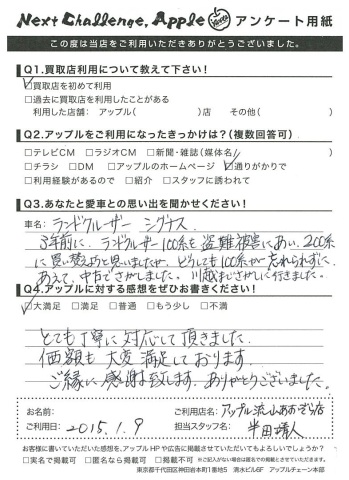 Next Challenge, Apple アンケート用紙
この度は当店をご利用いただきありがとうございました。
Q1.買取店利用について教えて下さい!
☑買取店を初めて利用
□過去に買取店を利用したことがある
利用した店舗: アップル( )店 その他( )
Q2.アップルをご利用になったきっかけは?(複数回答可)
□テレビCM □ラジオCM □新聞・雑誌(媒体名 )
□チラシ □DM □アップルのホームページ ☑通りがかりで
□利用経験があるので □紹介 □スタッフに誘われて
Q3.あなたと愛車との思い出を聞かせください!
車名: ランドクルーザー シグナス
3年前に、ランドクルーザー100系を盗難被害にあい、200系
に買い替えようと思いましたが、どうしても100系が忘れられずに、
あえて、中古でさがしました。川越までさがしに行きました。
Q4.アップルに対する感想をぜひお書きください!
☑大満足 □満足 □普通 □もう少し □不満
とても丁寧に対応して頂きました。
価額も大変満足しております。
ご縁に感謝致します。ありがとうございました。
お名前:
ご利用店名: アップル流山おおぞら店
ご利用日: 2015.1.9
担当スタッフ名: 半田靖人
お客様に書いていただいた感想を、アップルHPや広告に掲載させていただいてもよろしいでしょうか?
□実名で掲載可 □匿名なら掲載可 □掲載不可 ※ご記入がない場合は匿名での掲載とさせていただきます。
東京都千代田区神田岩本町1番地5 清水ビル6F アップルチェーン本部